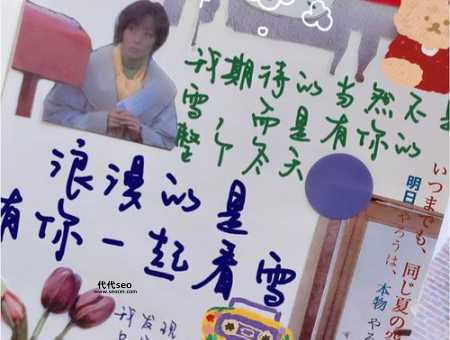 我期待的当然不是
雪，而是有你的
整个冬天
浪漫的是
有你一起看雪
代代seo
我发现
いつまでも、同じ夏の空
明日やろうは、本物やろ